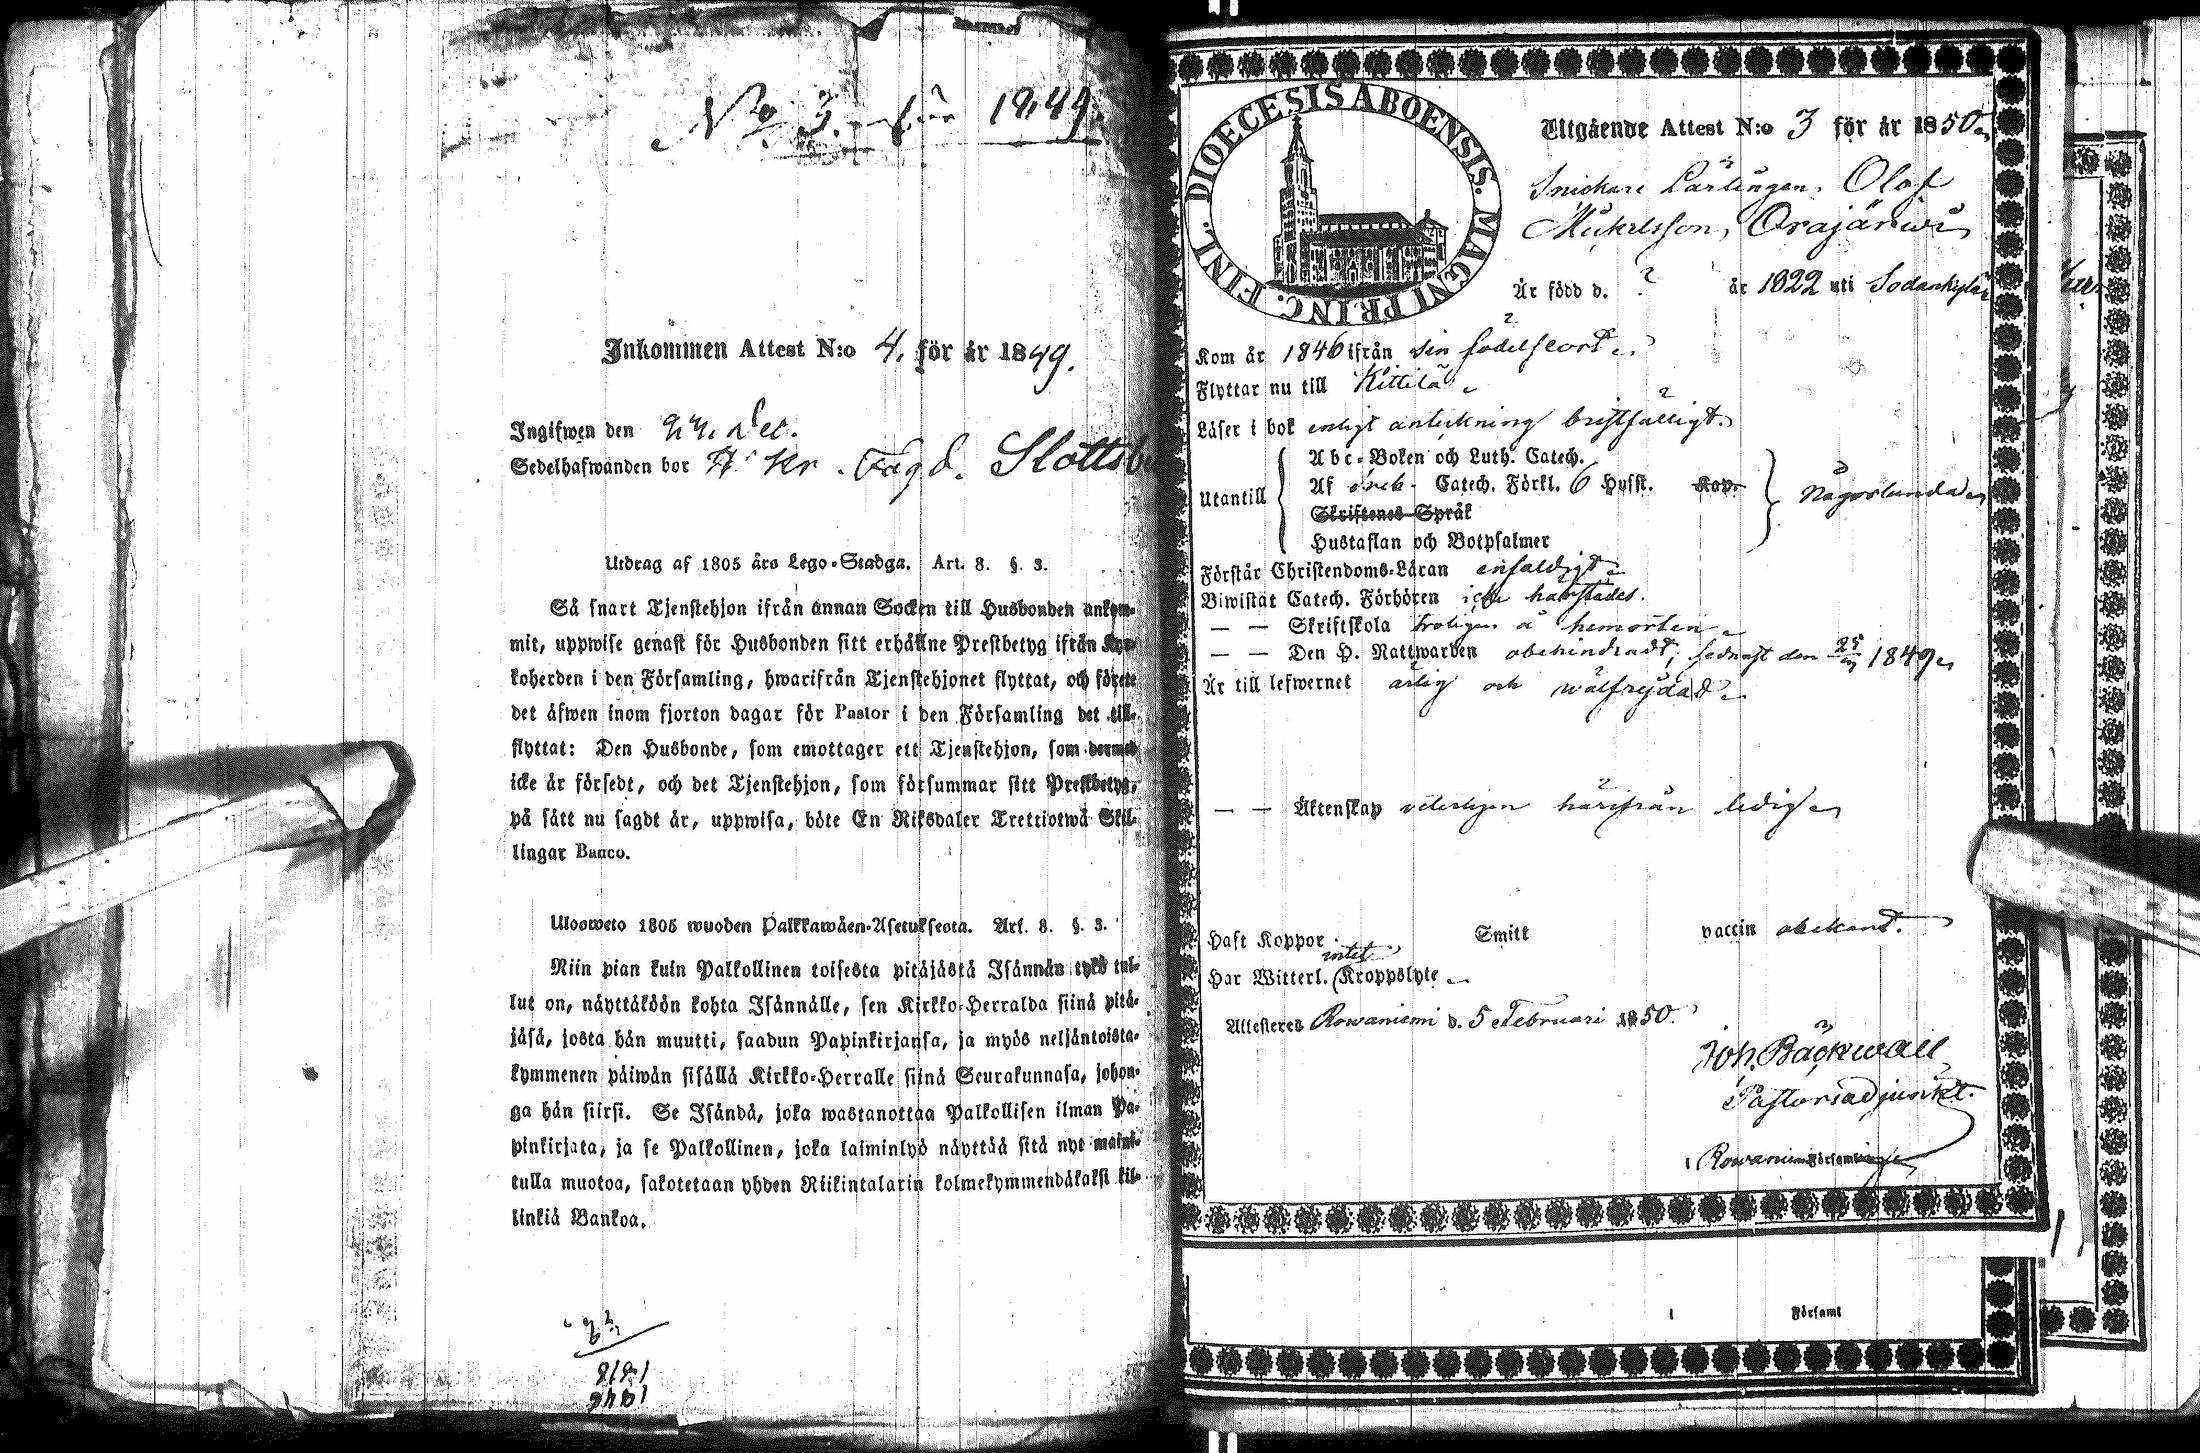 No 3. för 1849.
Inkommen Attest N:o 4. för år 1849.
Ingifwen den Dec.
Sedelhafwanden bor Kr. Fogd. Slottsb
Utdrag af 1805 års Lego-Stadga. Art. 8. §. 3.
Så snart Tjenstehjon ifrån annan Socken till Husbonden ankom-
mit, uppwise genast för Husbonden sitt erhållne Prestbetyg ifrån Kyr-
koherden i den Församling, hwarifrån Tjenstehjonet flyttat, och förete
det äfwen inom fjorton dagar för Pastor i den Församling det till-
flyttat: Den Husbonde, som emottager ett Tjenstehjon, som dermed
icke är försedt, och det Tjenstehjon, som försummar sitt Prestbetyg,
på sätt nu sagdt är, uppwisa, böte En Riksdaler Trettiotwå Skil-
lingar Banco.
Ulosweto 1805 wuoden Palkkawäen-Asetuksesta. Art. 8. §. 3.
Niin pian kuin Palkollinen toisesta pitäjästä Isännän tykö tul-
lut on, näyttäköön kohta Isännälle, sen Kirkko-Herralda siinä pitä-
jäsä, josta hän muutti, saadun Papinkirjansa, ja myös neljäntoista-
kymmenen päiwän sisällä Kirkko-Herralle siinä Seurakunnasa, johon-
ga hän siirsi. Se Isändä, joka wastanottaa Palkollisen ilman Pa-
pinkirjata, ja se Palkollinen, joka laiminlyö näyttää sitä nyt maini-
tulla muotoa, sakotetaan yhden Riikintalarin kolmekymmendäkaksi kil-
linkiä Bankoa.
1818
1848
FINL. DIOECESIS ABOENSIS. MAGNI PRINC.
Utgående Attest N:o 3 för år 1850
Snickare Lärlingen, Olof
Mickelsson, Orajärwi
Är född d. ? år 1822 uti Sodankylä
Kom år 1846 ifrån sin födelseort
Flyttar nu till Kittilä
Läser i bok enligt anteckning bristfälligt.
Abc-Boken och Luth. Catech.
Utantill Af Catech. Förkl. 6 Husst. Kap. någorlunda
Skriftenes Språk
Hustaflan och Botpsalmer
Förstår Christendoms-Läran enfaldigt
Biwistat Catech. Förhören icke härstädes.
— — Skriftskola troligen å hemorten
— — Den H. Nattwarden obehindradt, sednast den 25 1849
Är till lefwernet ärlig och wälfrejdad
— — Äktenskap weterligen härifrån ledig
Haft Koppor Smitt vaccin obekant.
Har Witterl. intet Kroppslyte
Attesteres Rowaniemi d. 5 Februari 1850.
Joh. Bäckwall
Pastorsadjunkt.
Rowaniemi Församling
Församl